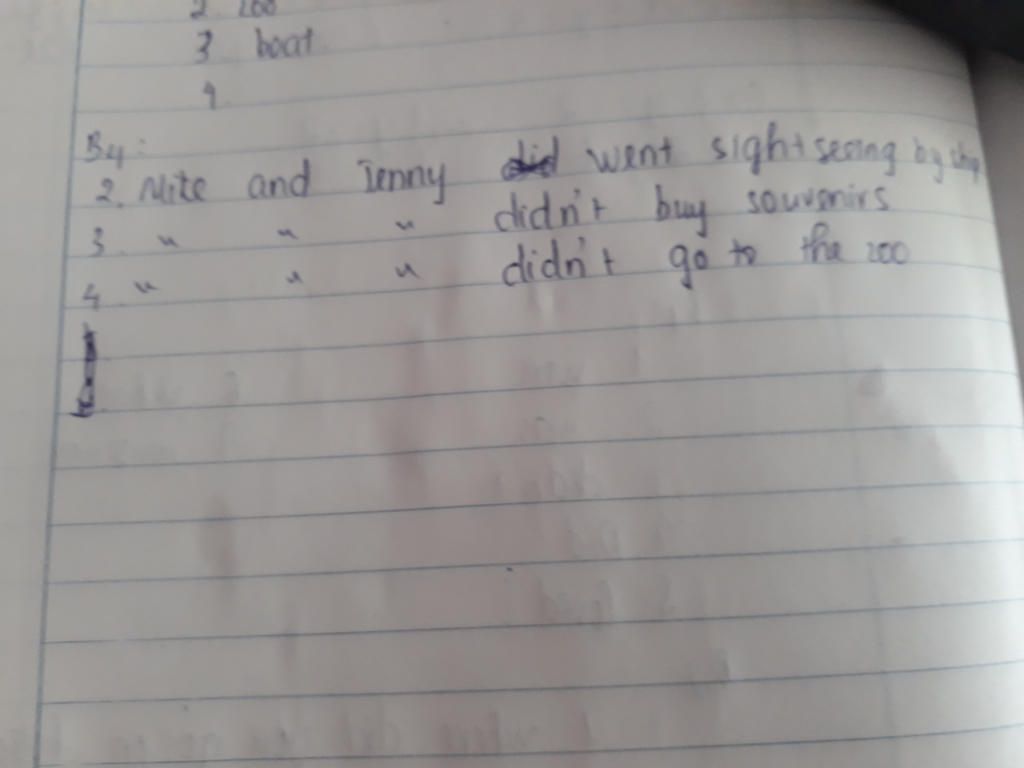 2 zoo
3 boat
4
B4:
2. Mike and Jenny did went sightseeing by ship
3 " " " didn't buy souvenirs
4 " " " didn't go to the zoo